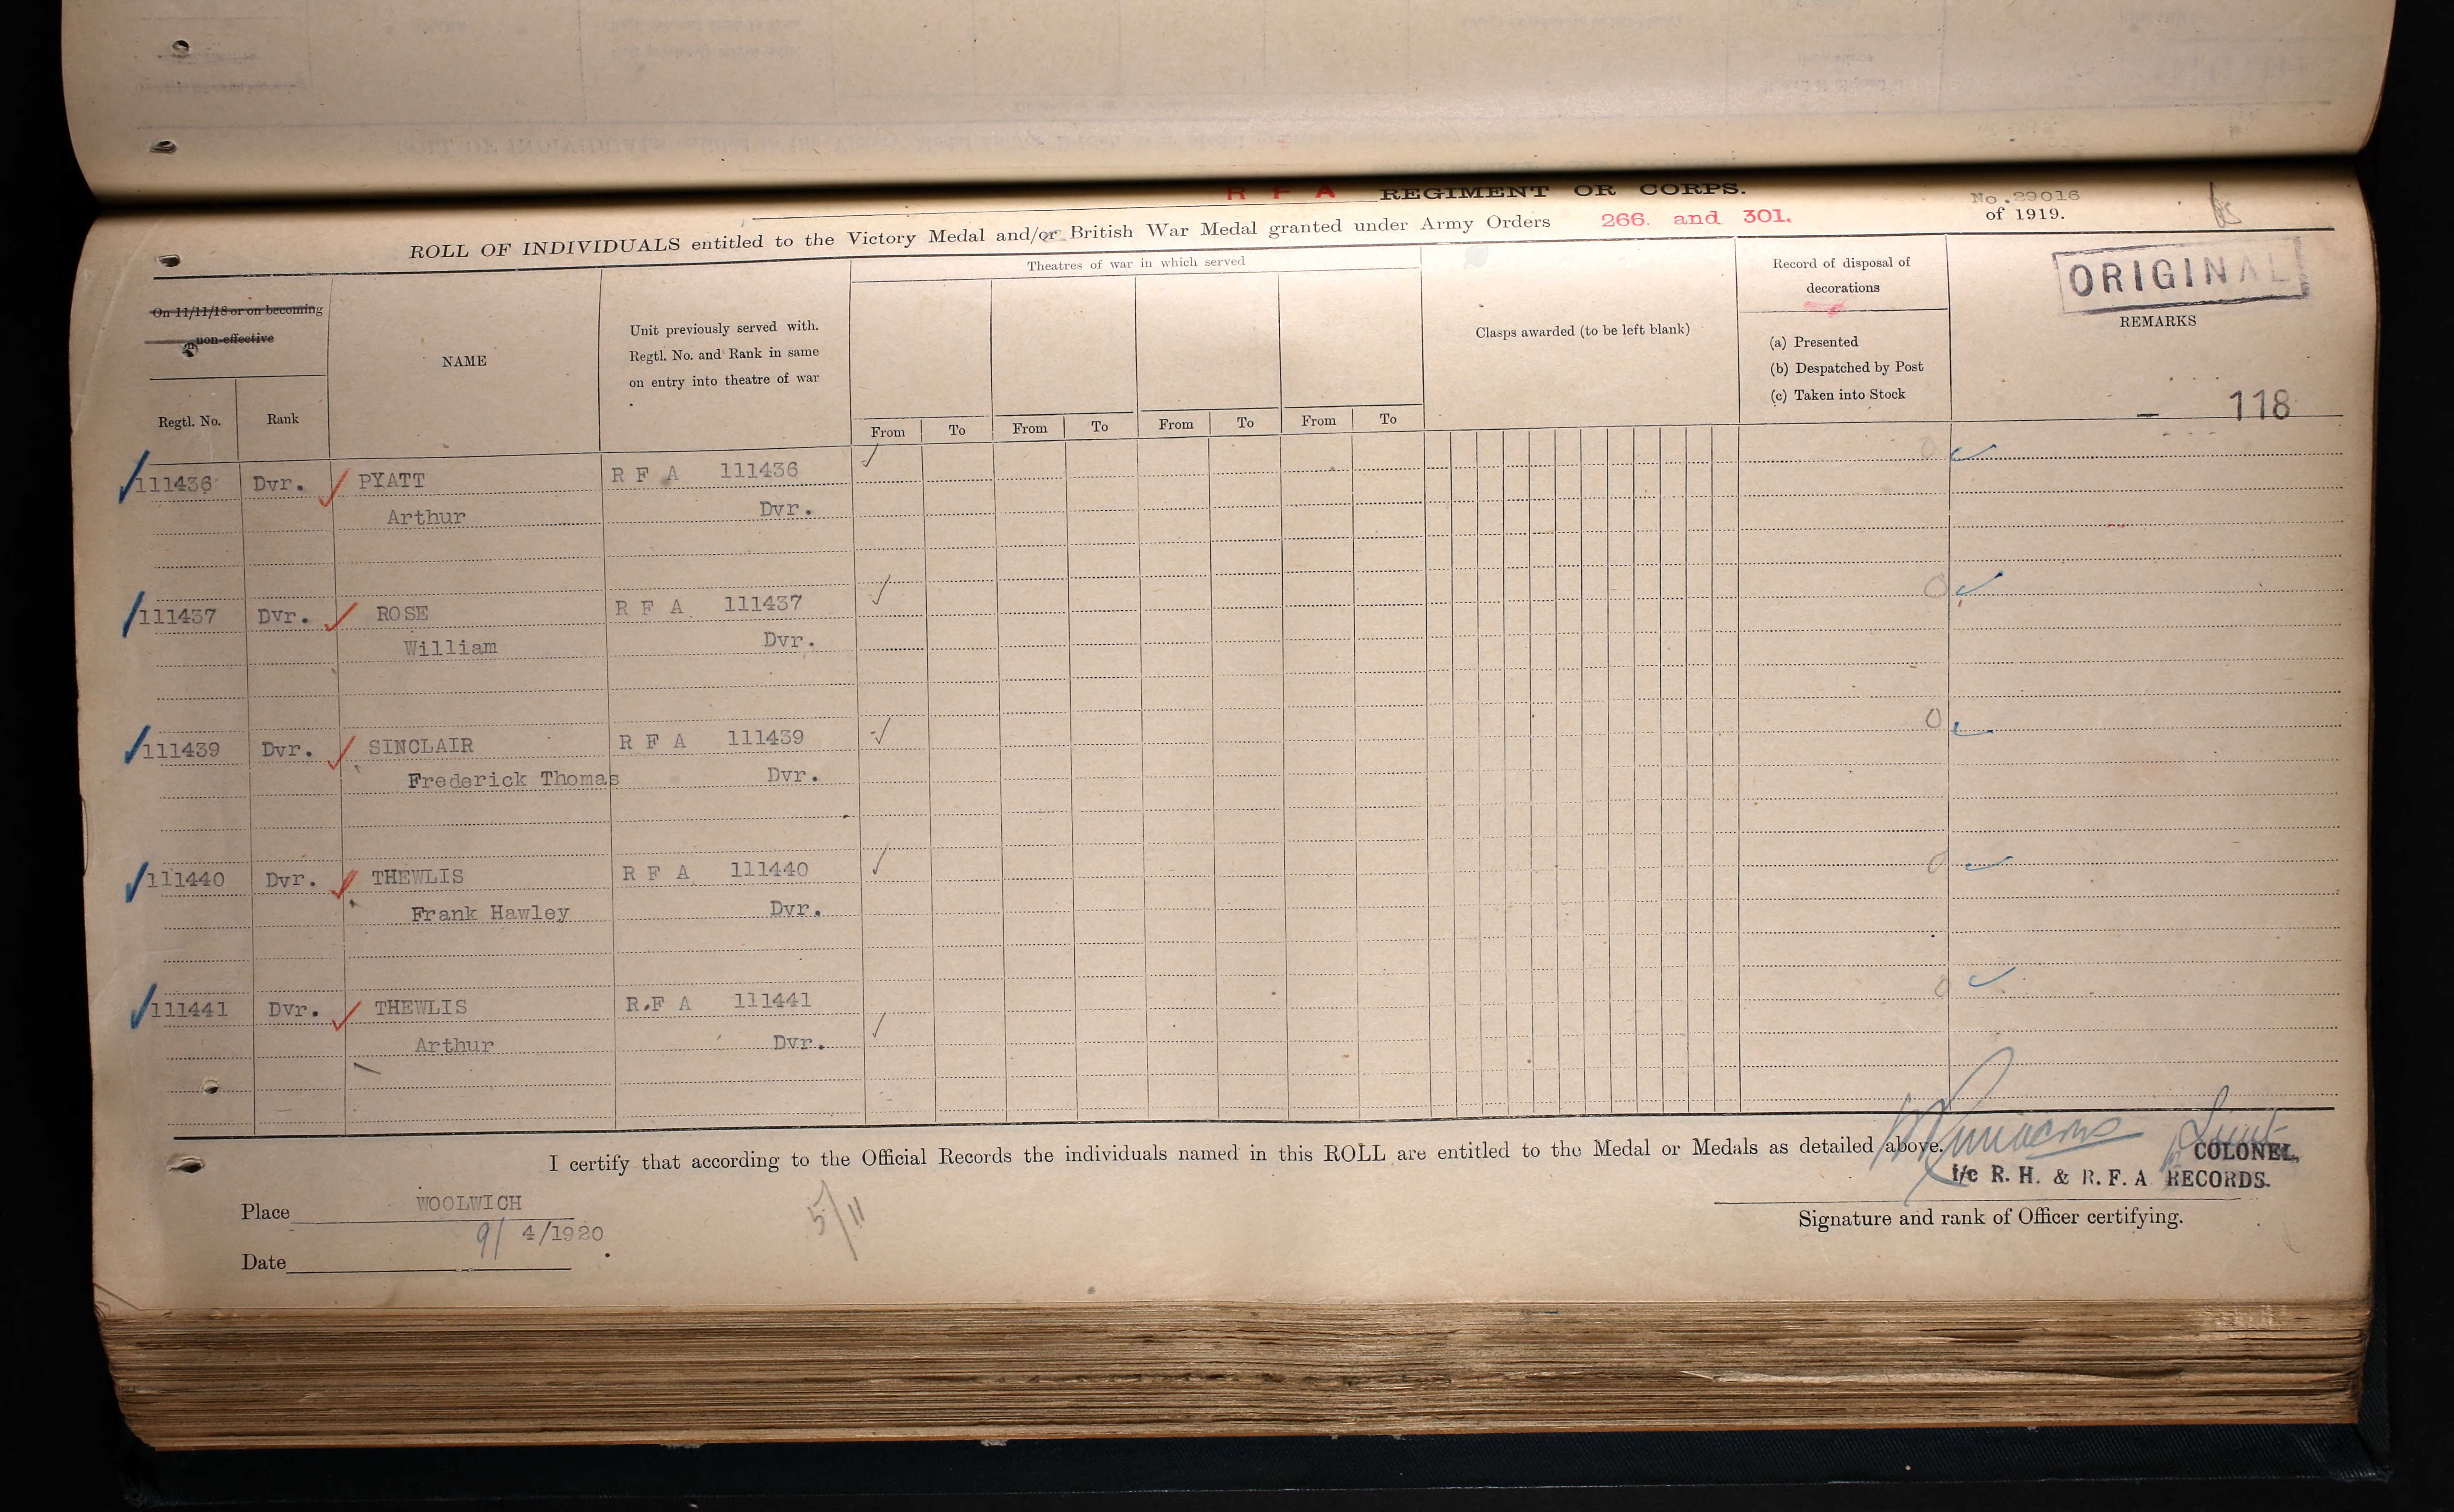 R F A REGIMENT OR CORPS.
No.29016
ROLL OF INDIVIDUALS entitled to the Victory Medal and/or British War Medal granted under Army Orders 266. and 301. of 1919.
ORIGINAL
On 11/11/18 or on becoming
non-effective
Regtl. No.
Rank
NAME
Unit previously served with.
Regtl. No. and Rank in same
on entry into theatre of war
Theatres of war in which served
From To From To From To From To
Clasps awarded (to be left blank)
Record of disposal of
decorations
(a) Presented
(b) Despatched by Post
(c) Taken into Stock
REMARKS
— 118
111436 Dvr. PYATT R F A 111436
Arthur Dvr.
111437 Dvr. ROSE R F A 111437
William Dvr.
111439 Dvr. SINCLAIR R F A 111439
Frederick Thomas Dvr.
111440 Dvr. THEWLIS R F A 111440
Frank Hawley Dvr.
111441 Dvr. THEWLIS R.F A 111441
Arthur Dvr.
I certify that according to the Official Records the individuals named in this ROLL are entitled to the Medal or Medals as detailed above.
COLONEL,
i/c R. H. & R. F. A RECORDS.
Place WOOLWICH
9/ 4/1920
Date
5/11
Signature and rank of Officer certifying.